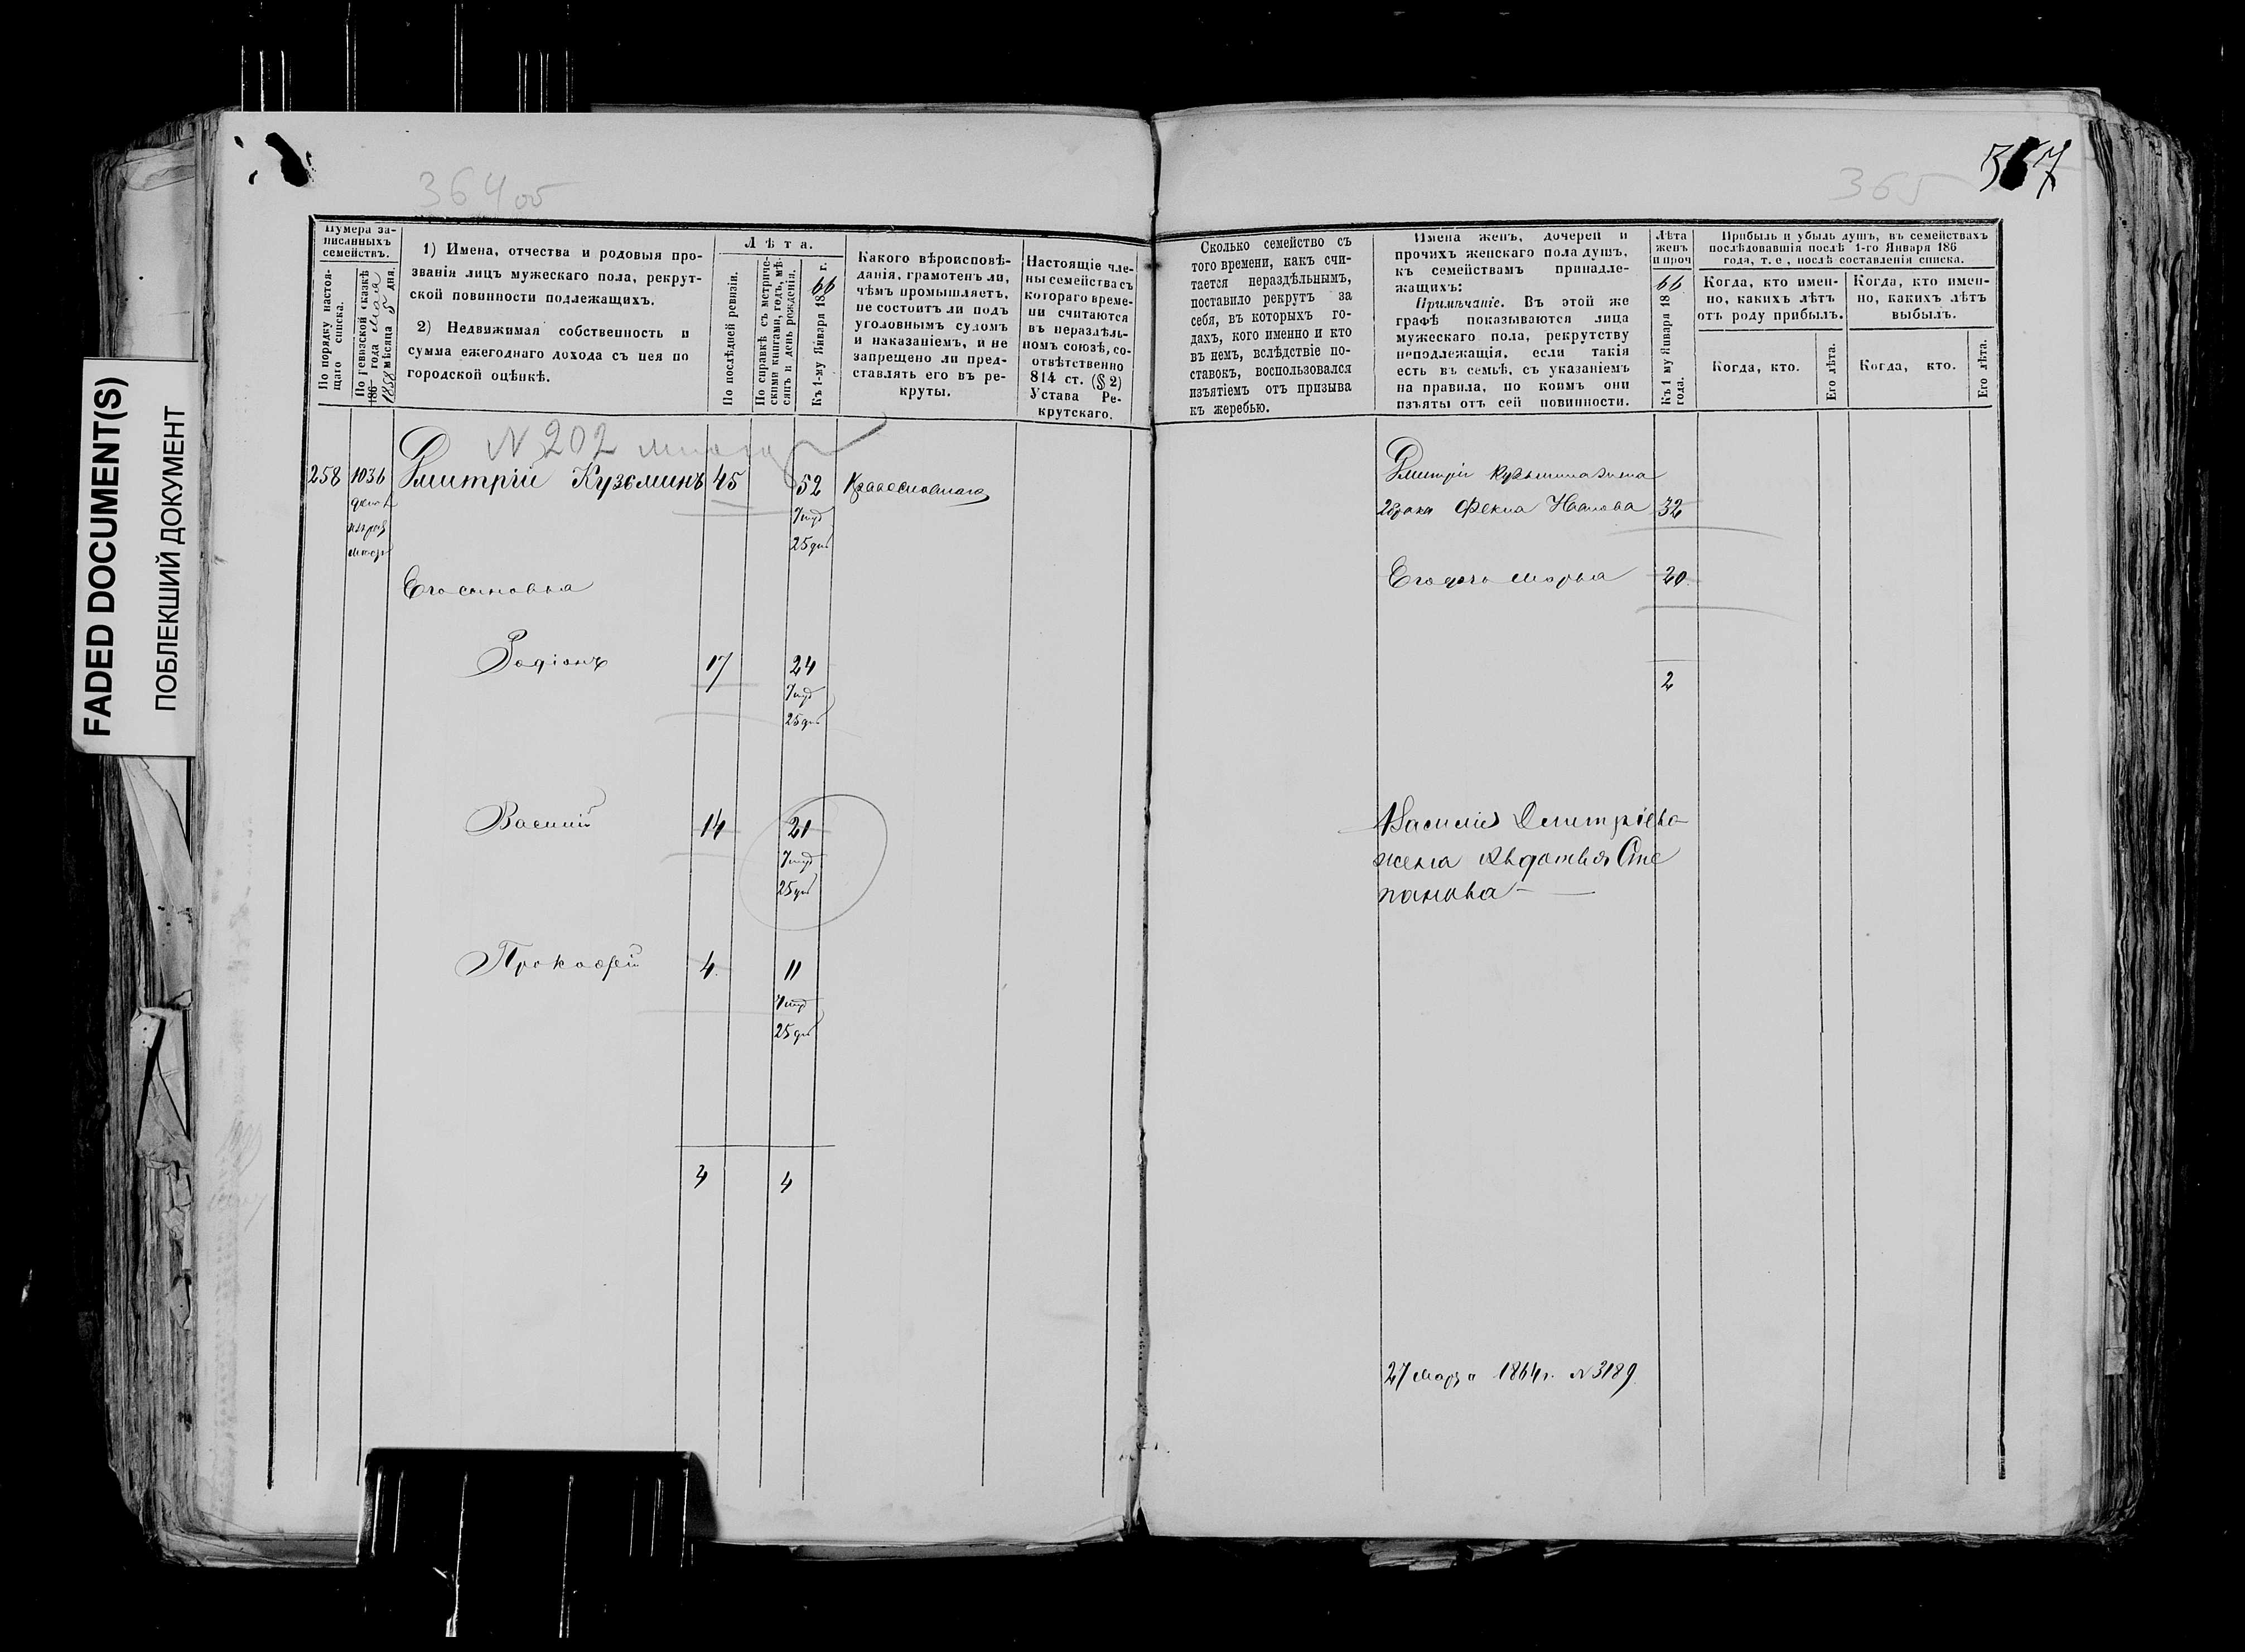 FADED DOCUMENT(S)
ПОБЛЕКШИЙ ДОКУМЕНТ
364 об
Нумера за-
писанныхъ
семействъ.
По порядку настоя-
щаго списка.
По ревизской сказкѣ
186 года мая
1858 мѣсяца 5 дня.
1) Имена, отчества и родовыя про-
званія лицъ мужескаго пола, рекрут-
ской повинности подлежащихъ.
2) Недвижимая собственность и
сумма ежегоднаго дохода съ нея по
городской оцѣнкѣ.
Лѣта.
По послѣдней ревизіи.
По справкѣ съ метриче-
скими книгами, годъ, мѣ-
сяцъ и день рожденія.
Къ 1-му Января 1866 г.
Какого вѣроисповѣ-
данія, грамотенъ ли,
чѣмъ промышляетъ,
не состоитъ ли подъ
уголовнымъ судомъ
и наказаніемъ, и не
запрещено ли пред-
ставлять его въ ре-
круты.
Настоящіе чле-
ны семейства съ
котораго време-
ни считаются
въ нераздѣль-
номъ союзѣ, со-
отвѣтственно
814 ст. (§ 2)
Устава Ре-
крутскаго.
N 202
258 1036 Дмитрій Кузьминъ 45 52
7 мѣс
25 дн
Его сыновья
Родіонъ 17 24
7 мѣс
25 дн
Василій 14 21
7 мѣс
25 дн
Прокофій 4 11
7 мѣс
25 дн
4 4
365
367
Сколько семейство съ
того времени, какъ счи-
тается нераздѣльнымъ,
поставило рекрутъ за
себя, въ которыхъ го-
дахъ, кого именно и кто
въ немъ, вслѣдствіе по-
ставокъ, воспользовался
изъятіемъ отъ призыва
къ жеребью.
Имена женъ, дочерей и
прочихъ женскаго пола душъ,
къ семействамъ принадле-
жащихъ:
Примѣчаніе. Въ этой же
графѣ показываются лица
мужескаго пола, рекрутству
неподлежащія, если такія
есть въ семьѣ, съ указаніемъ
на правила, по коимъ они
изъяты отъ сей повинности.
Лѣта
женъ
и проч
Къ 1 му Января 1866
года.
Прибыль и убыль душъ, въ семействахъ
послѣдовавшія послѣ 1-го Января 186
года, т. е, послѣ составленія списка.
Когда, кто имен-
но, какихъ лѣтъ
отъ роду прибылъ.
Когда, кто имен-
но, какихъ лѣтъ
выбылъ.
Когда, кто.
Его лѣта.
Когда, кто.
Его лѣта.
Дмитрія Кузьмина жена
2 брака Фекла Иванова 32
Его дочь Марья 20
2
Василія Дмитріева
жена Авдотья Сте
панова
27 Марта 1864 г. N 3189